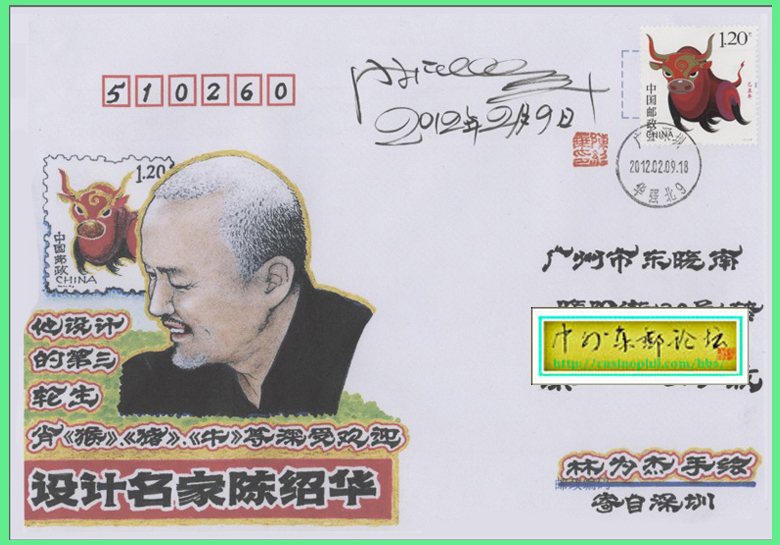 510260
2012年2月9日
1.20元
中国邮政
CHINA
己丑年
2012.02.09.18
华强北9
1.20
中国邮政
CHINA
他设计
的第三
轮生
肖《猴》、《猪》、《牛》等深受欢迎
设计名家陈绍华
广州市东晓南
中外集邮论坛
http://cnsinophil.com/bbs/
林为杰手绘
寄自深圳